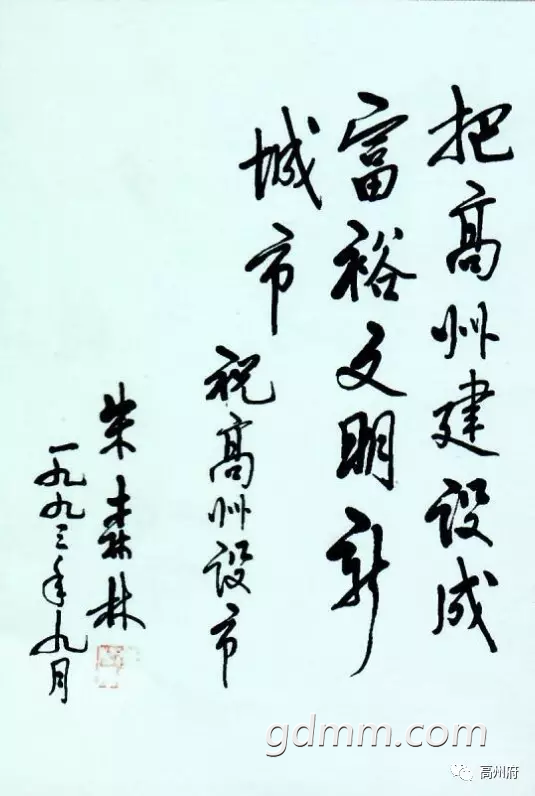 把高州建设成
富裕文明新
城市
祝高州设市
朱森林
一九九三年九月
gdmm.com
高州府